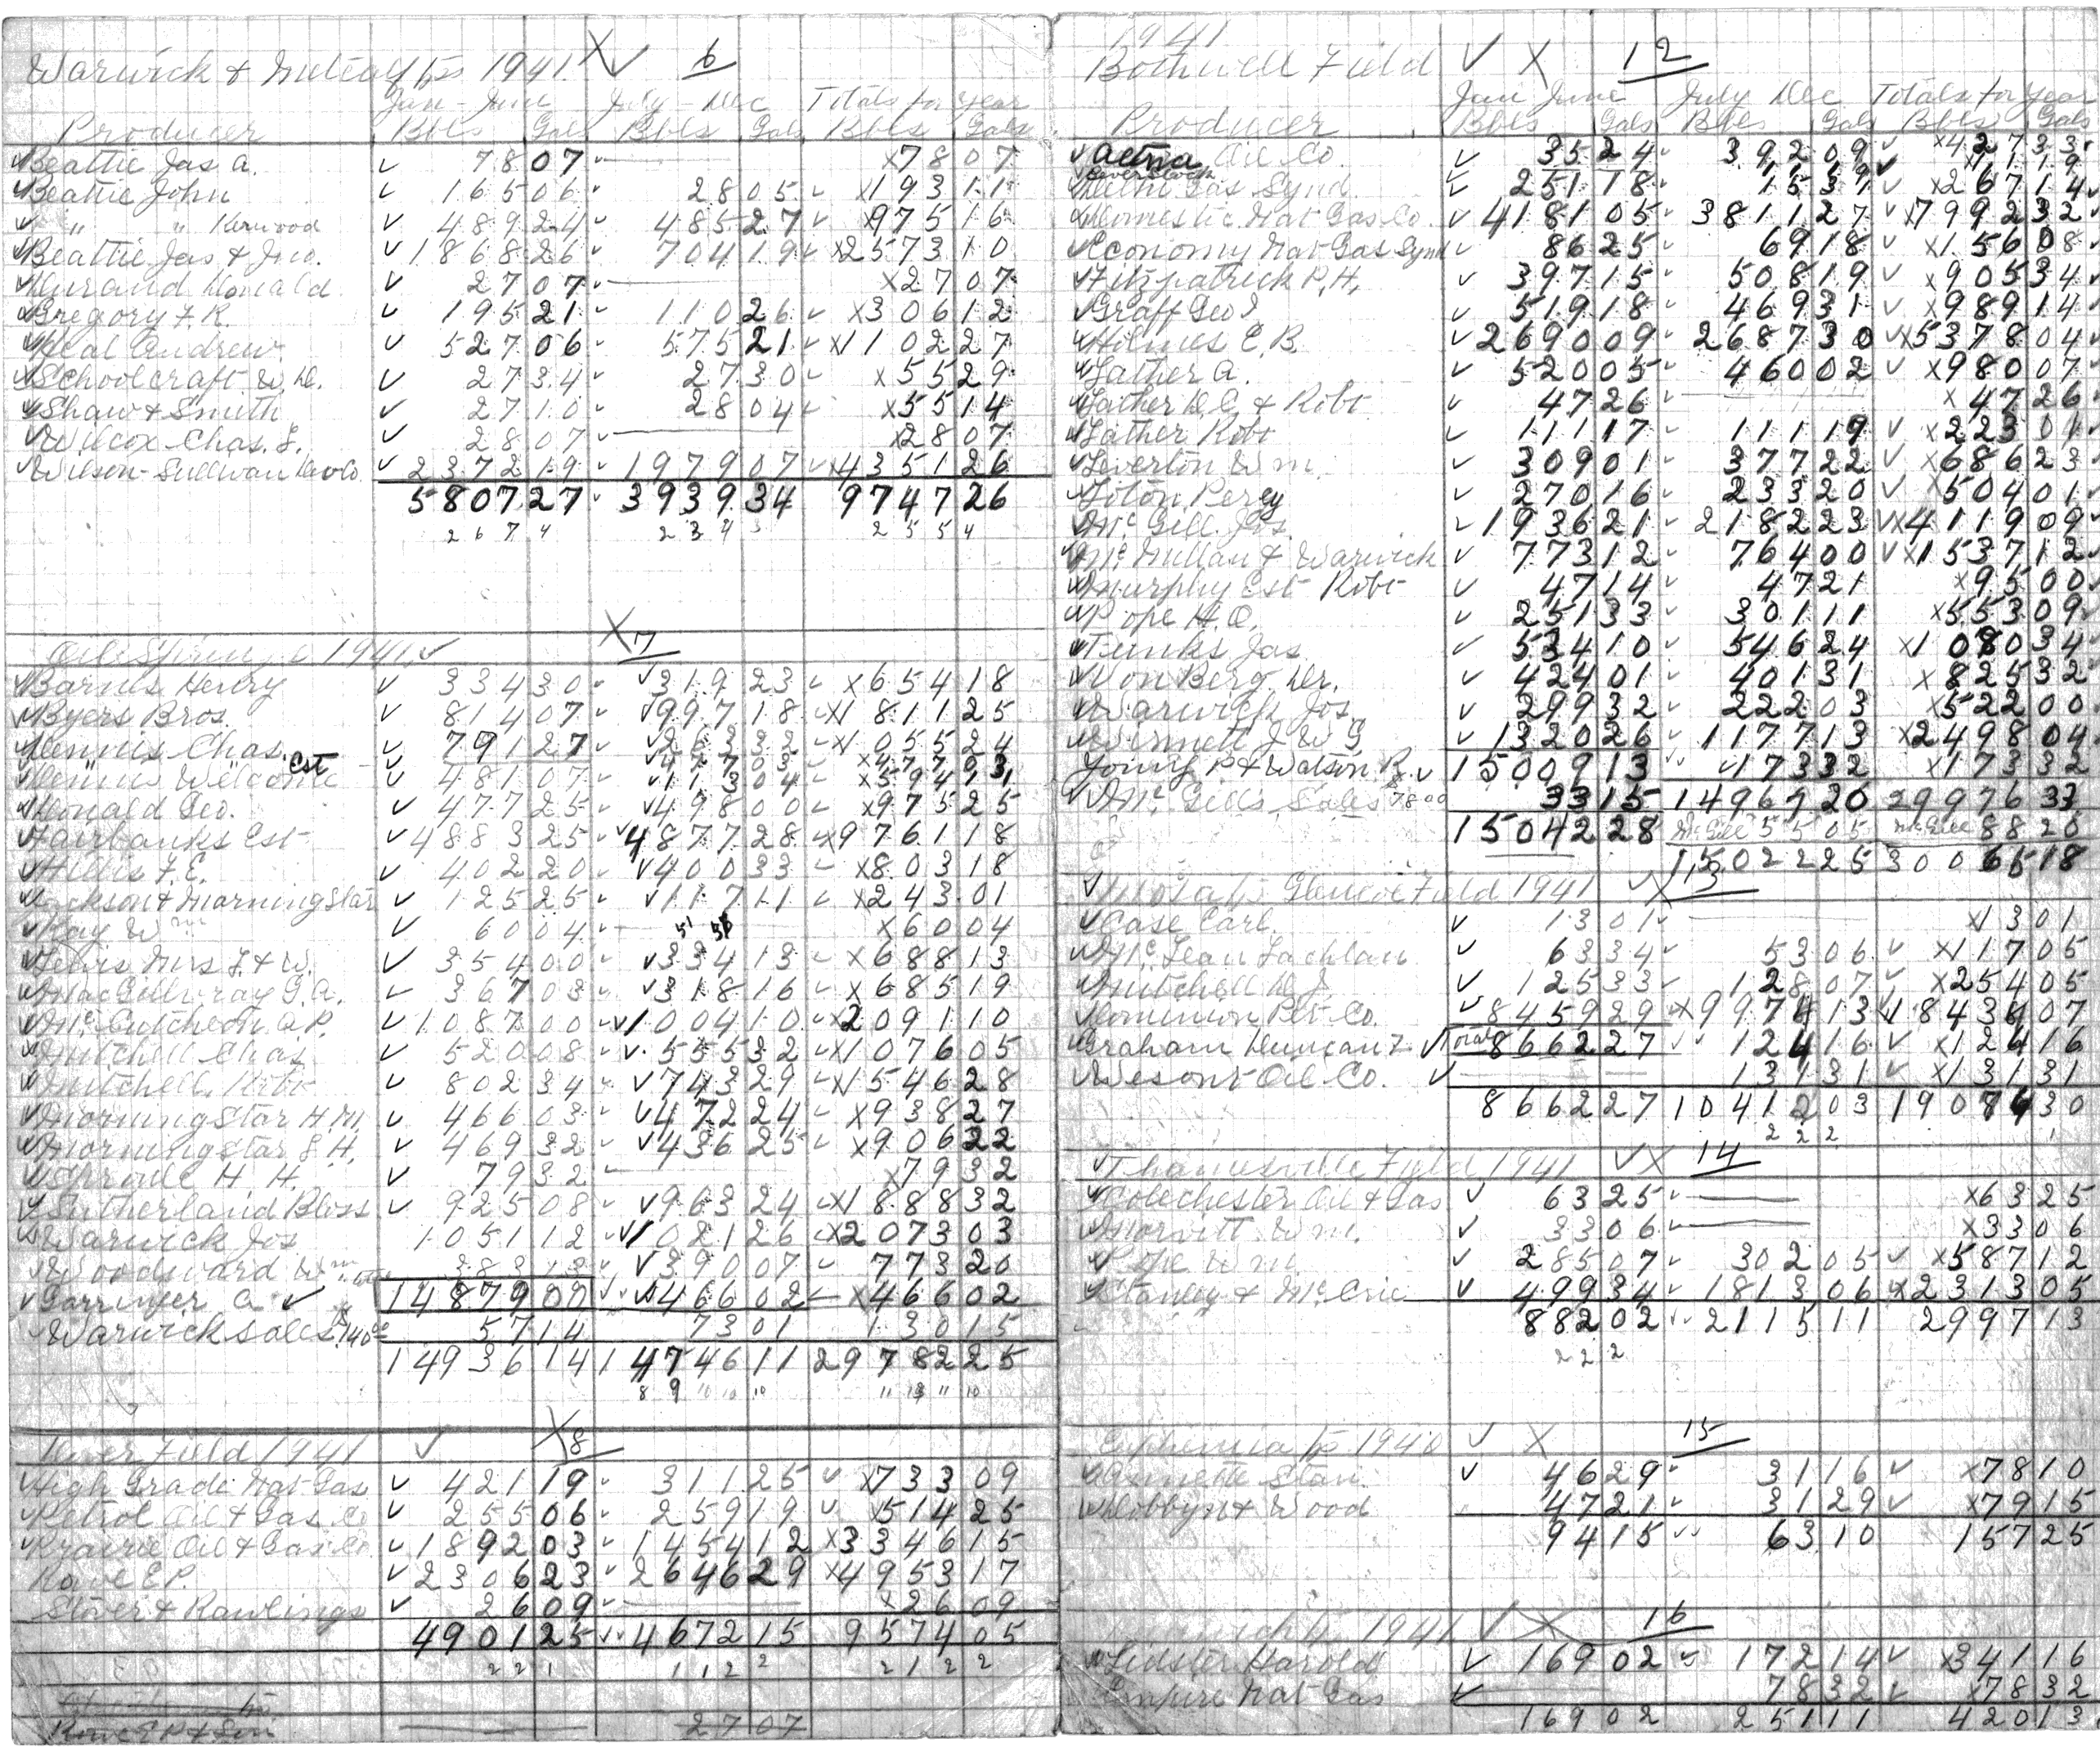 Warwick & Metcalf tps 1941. X✓ 6
Jan-June July-Dec Totals for Year
Producer Bbls Gals Bbls Gals Bbls Gals
Beattie Jas A. 78 07 — 78 07
Beattie John 165 06 28 05 193 11
" " Kerwood 489 24 485 27 975 16
Beattie Jas & Jno. 1868 26 704 19 2573 10
Durand Donald 27 07 — 27 07
Gregory F.R. 195 21 110 26 306 12
Heal Andrew 527 06 575 21 1102 27
Schoolcraft W.D. 27 34 27 30 55 29
Shaw & Smith 27 10 28 04 55 14
Wilcox Chas. L. 28 07 — 28 07
Wilson-Sullivan Dev Co 2372 19 1979 07 4351 26
5807 27 3939 34 9747 26
2 6 7 4 2 3 4 3 2 5 5 4
Oil Springs 1941 X 7
Barnes Henry 334 30 319 23 654 18
Byers Bros. 814 07 997 18 1811 25
Dennis Chas. 791 27 263 32 1055 24
" " Est 47 03 47 03
Dennis Welcome 481 07 113 04 594 11
Donald Geo. 477 25 498 00 975 25
Fairbanks Est 4883 25 4877 28 9761 18
Hillis F.E. 402 20 400 33 803 18
Jackson & Morningstar 125 25 117 11 243 01
Kay Wm 60 04 — 60 04
Lewis Mrs J. & W. 354 00 334 13 688 13
MacGillivray G.A. 367 03 318 16 685 19
McCutcheon A.P. 1087 00 1004 10 2091 10
Mitchell Chas. 520 08 555 32 1076 05
Mitchell Robt 802 34 743 29 1546 28
Morningstar H M. 466 03 472 24 938 27
Morningstar S.H. 469 32 436 25 906 22
Sproule H.H. 79 32 — 79 32
Sutherland Bloss 925 08 963 24 1888 32
Warwick Jos 1051 12 1021 26 2073 03
Woodward Wm 383 13 390 07 773 20
Garringer A 14879 00 466 02 466 02
Warwick sales 57 14 73 01 130 15
14936 14 14746 11 29782 25
8 9 10 10 10 11 13 11 10
Dover Field 1941 X8
High Grade Nat Gas 421 19 311 25 733 09
Petrol Oil & Gas Co 255 06 259 19 514 25
Prairie Oil & Gas Co 1892 03 1454 12 3346 15
Rowe E P. 2306 23 2646 29 4953 17
Stover & Rawlings 26 09 — 26 09
4901 25 4672 15 9574 05
2 2 1 1 1 2 2 2 1 2 2
Rowe E P & Son — 27 07
1941
Bothwell Field ✓ X 12
Jan June July Dec Totals for Year
Producer Bbls Gals Bbls Gals Bbls Gals
Aetna Oil Co. 35 24 392 09 427 33
Delhi Gas Synd. 251 18 15 31 267 14
Domestic Nat Gas Co. 4181 05 3811 27 7992 32
Economy Nat Gas Synd 86 25 69 18 156 08
Fitzpatrick P.H. 397 15 508 19 905 34
Graff Geo J 519 18 469 31 989 14
Hilmes C.B. 2690 09 2687 30 5378 04
Lather A. 520 05 460 02 980 07
Lather D.C. & Robt 47 26 — 47 26
Lather Robt 111 17 111 19 223 01
Leverton Wm. 309 01 377 22 686 23
Loton Percy 270 16 233 20 504 01
McGill Jas. 1936 21 2182 23 4119 09
McMullan & Warwick 773 12 764 00 1537 12
Murphy Est Robt 47 14 47 21 95 00
Pope H.O. 251 33 301 11 553 09
Tunks Jas 534 10 546 24 1080 34
Von Berg Dr. 424 01 401 31 825 32
Warwick Jos 299 32 222 03 522 00
Winnett J W G 1320 26 1177 13 2498 04
Young P & Watson R. 15009 13 173 32 173 32
McGills Sales 33 15 14967 20 29976 33
15042 28 McGill 55 05 McGill 88 20
15022 25 30065 18
Mosa tp Glencoe Field 1941 ✓X 13
Case Earl 13 01 — 13 01
McLean Lachlan 63 34 53 06 117 05
Mitchell D J. 125 33 128 07 254 05
Dominion Pet Co. 8459 29 9974 13 18434 07
Graham Duncan Z Total 8662 27 124 16 124 16
Wesont Oil Co. 131 31 131 31
8662 27 10412 03 19074 30
2 2 2
Thamesville Field 1941 ✓X 14
Colechester Oil & Gas 63 25 — 63 25
Morvitt Wm. 33 06 — 33 06
Pope Wm. 285 07 302 05 587 12
Stanley & McCrie 499 34 1813 06 2313 05
882 02 2115 11 2997 13
2 2 2
Euphemia tp 1940 ✓ X 15
Annette Stan. 46 29 31 16 78 10
Dobbyn & Wood 47 21 31 29 79 15
94 15 63 10 157 25
1941 ✓ X 16
Lidster Harold 169 02 172 14 341 16
Empire Nat Gas 78 32 78 32
169 02 251 11 420 13